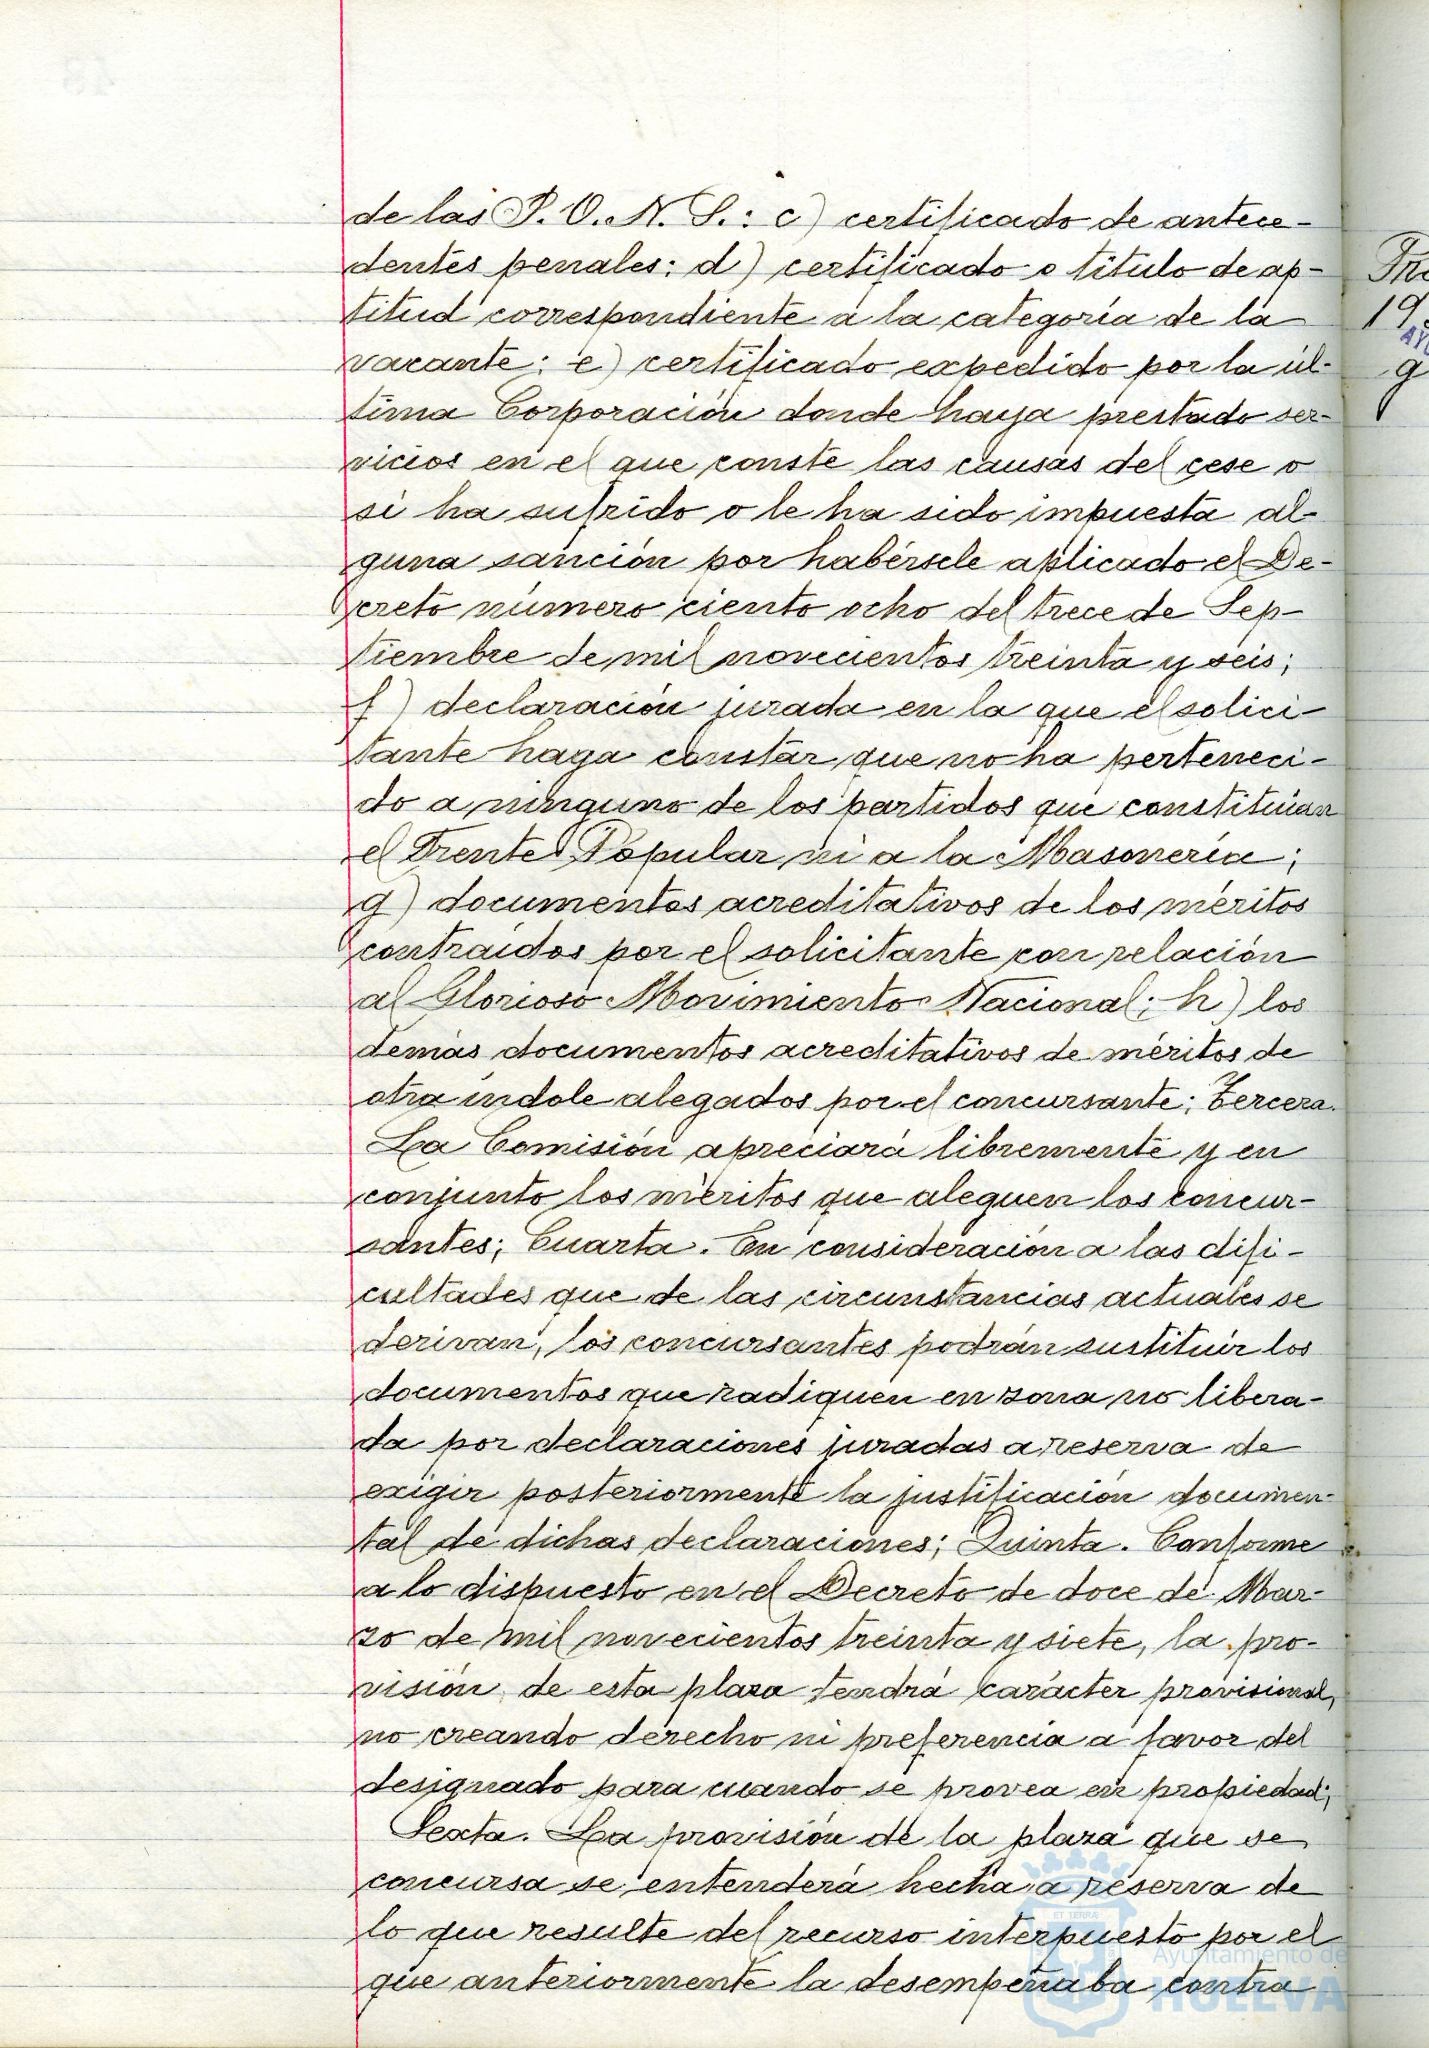 de las P. O. N. S.: c) certificado de antece-
dentes penales; d) certificado o titulo de ap-
titud correspondiente a la categoría de la
vacante; e) certificado expedido por la úl-
tima Corporación donde haya prestado ser-
vicios en el que conste las causas del cese o
si ha sufrido o le ha sido impuesta al-
guna sanción por habérsele aplicado el De-
creto número ciento ocho del trece de Sep-
tiembre de mil novecientos treinta y seis;
f) declaración jurada en la que el solici-
tante haga constar que no ha perteneci-
do a ninguno de los partidos que constituían
el Frente Popular ni a la Masonería;
g) documentos acreditativos de los méritos
contraídos por el solicitante con relación
al Glorioso Movimiento Nacional; h) los
demás documentos acreditativos de méritos de
otra índole alegados por el concursante; Tercera.
La Comisión apreciará libremente y en
conjunto los méritos que aleguen los concur-
santes; Cuarta. En consideración a las difi-
cultades que de las circunstancias actuales se
derivan, los concursantes podrán sustituir los
documentos que radiquen en zona no libera-
da por declaraciones juradas a reserva de
exigir posteriormente la justificación documen-
tal de dichas declaraciones; Quinta. Conforme
a lo dispuesto en el Decreto de doce de Mar-
zo de mil novecientos treinta y siete, la pro-
visión de esta plaza tendrá carácter provisional,
no creando derecho ni preferencia a favor del
designado para cuando se provea en propiedad;
Sexta. La provisión de la plaza que se
concursa se entenderá hecha a reserva de
lo que resulte del recurso interpuesto por el
que anteriormente la desempeñaba contra
Ayuntamiento de
HUELVA